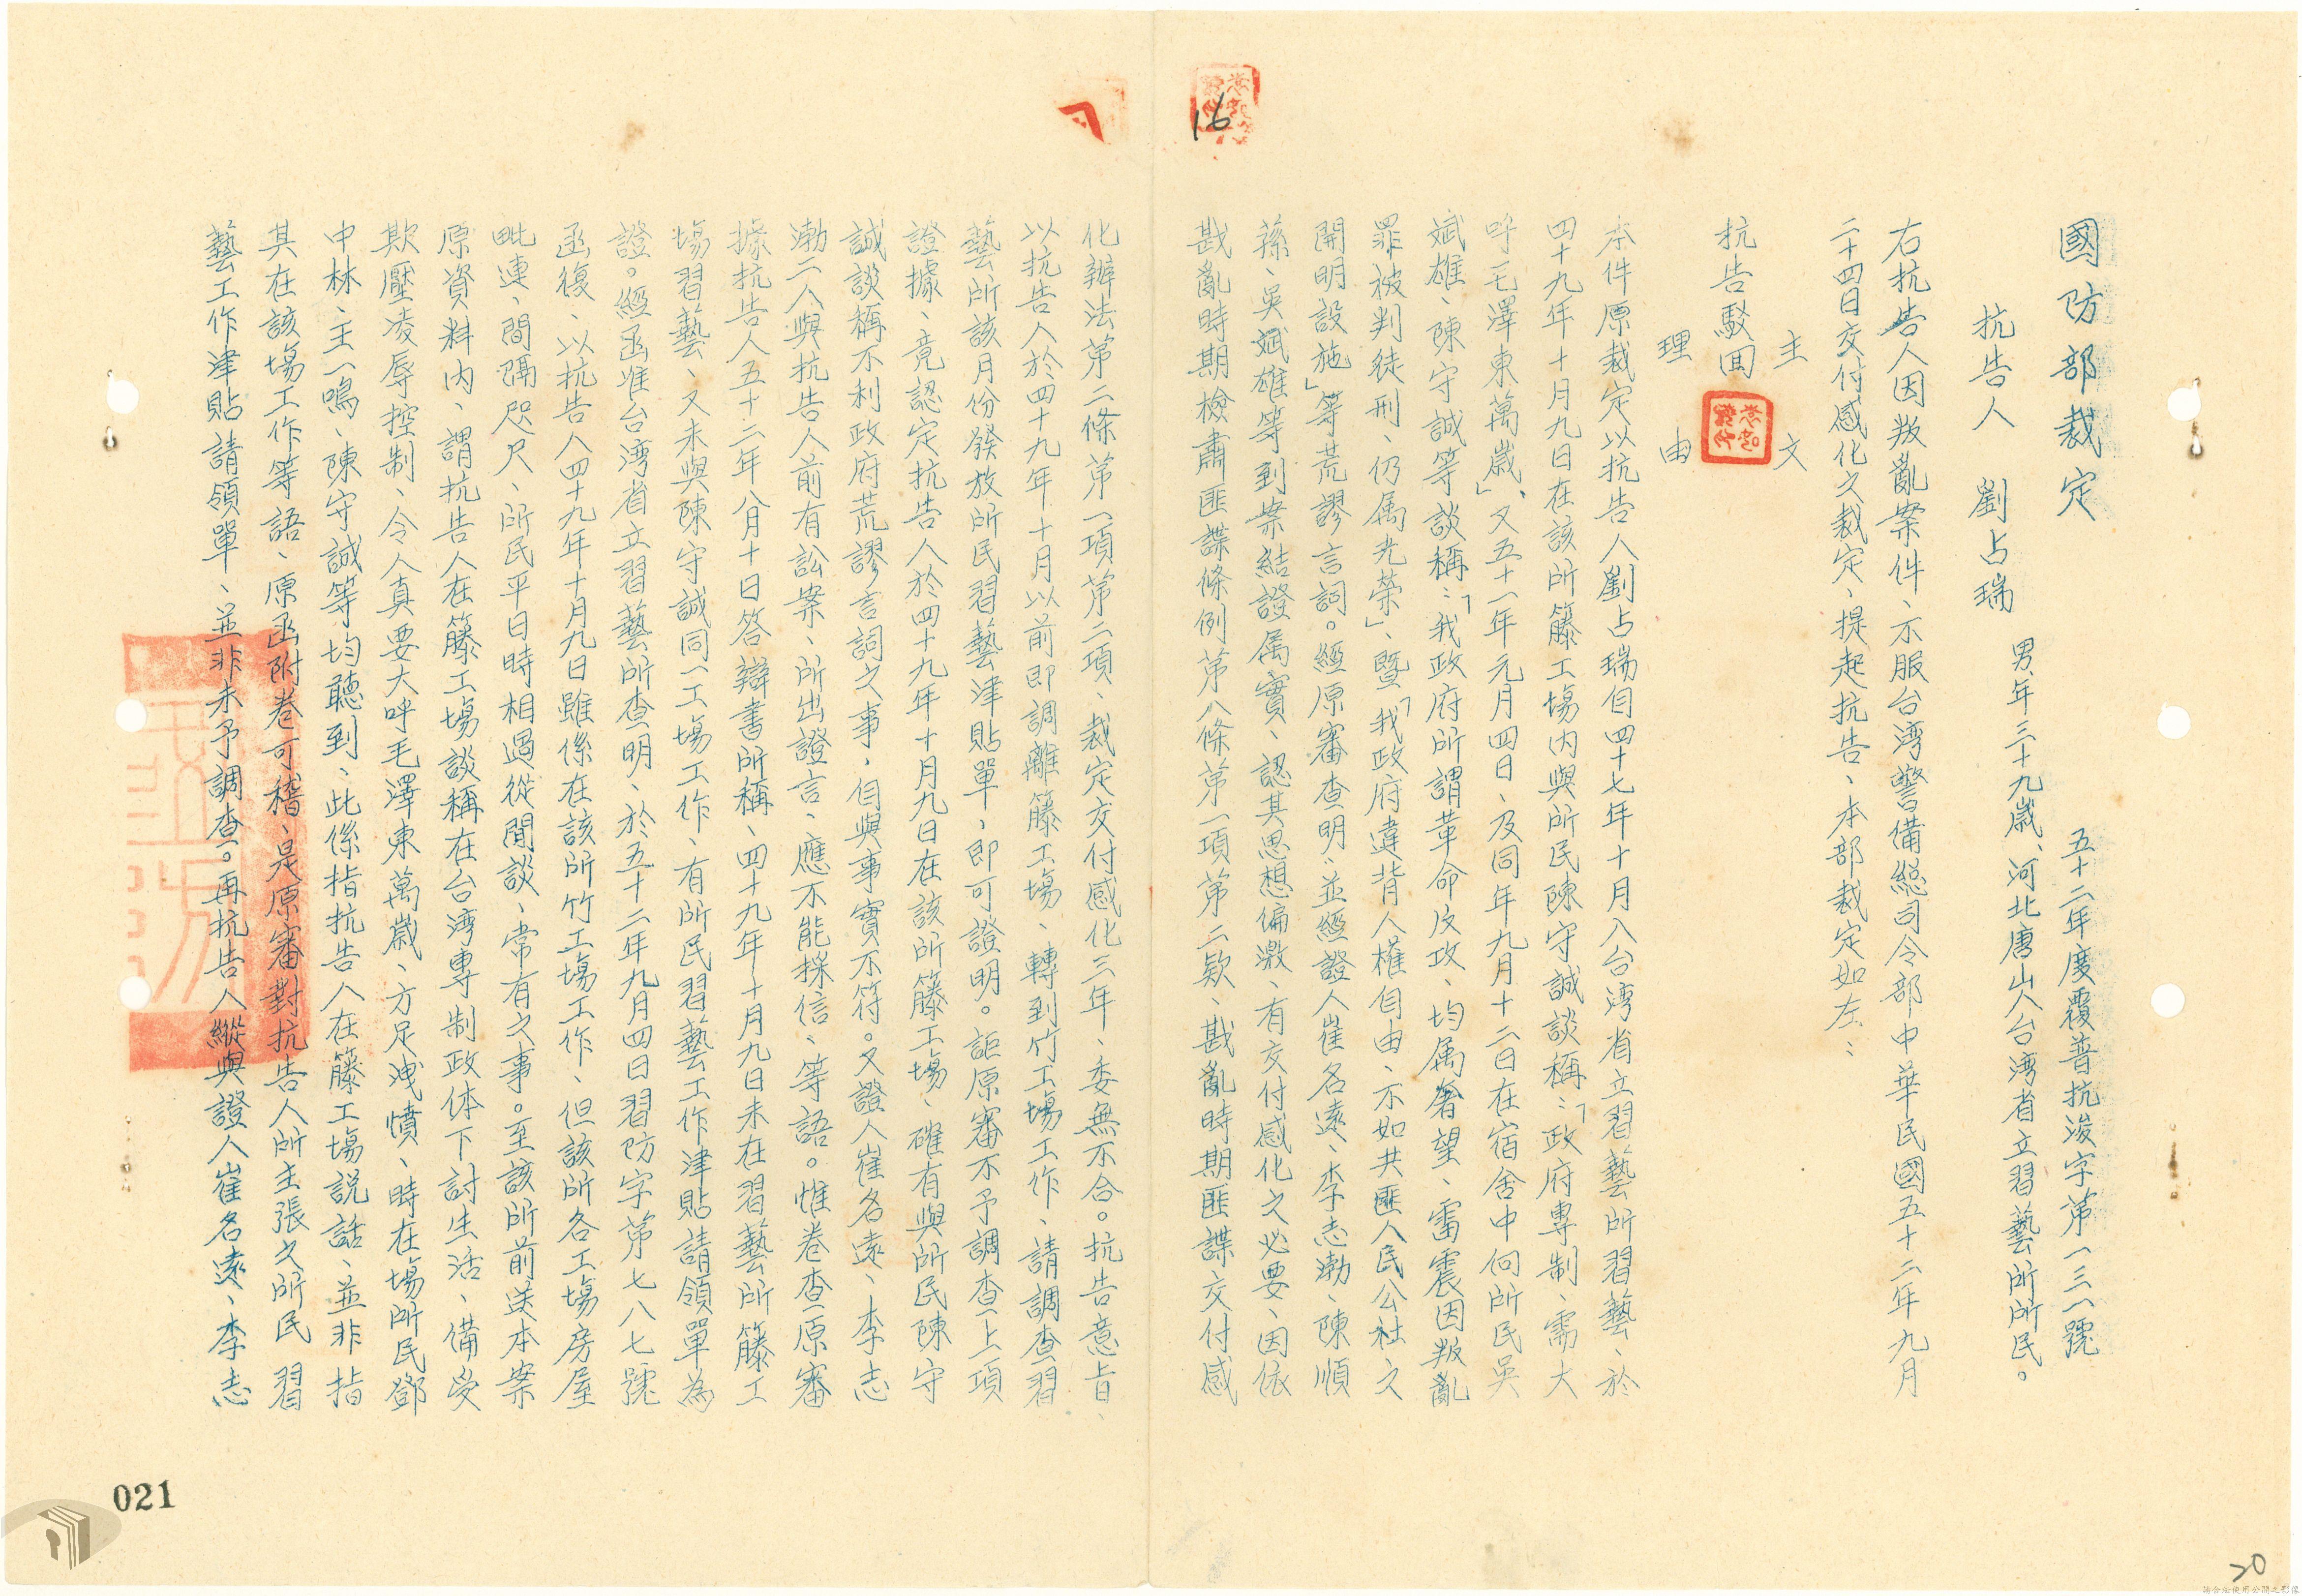 國防部裁定
五十二年度覆普抗浚字第一三一號
抗告人　劉占瑞　男、年三十九歲、河北唐山人台湾省立習藝所所民。
右抗告人因叛亂案件、不服台湾警備總司令部中華民國五十二年九月
二十四日交付感化之裁定、提起抗告、本部裁定如左：
主文
抗告駁回
理由
本件原裁定以抗告人劉占瑞自四十七年十月入台湾省立習藝所習藝、於
四十九年十月九日在該所籐工場內與所民陳守誠談稱：「政府專制、需大
呼毛澤東萬歲」、又五十一年元月四日、及同年九月十二日在宿舍中向所民吳
斌雄、陳守誠等談稱：「我政府所謂革命反攻、均屬奢望、雷震因叛亂
罪被判徒刑、仍属光榮」、暨「我政府違背人權自由、不如共匪人民公社之
開明設施」等荒謬言詞。經原審查明、並經證人崔名遠、李志渤、陳順
蓀、吳斌雄等到案結證属實、認其思想偏激、有交付感化之必要、因依
戡亂時期檢肅匪諜條例第八條第一項第二款、戡亂時期匪諜交付感
化辦法第二條第一項第二項、裁定交付感化三年、委無不合。抗告意旨、
以抗告人於四十九年十月以前即調離籐工場、轉到竹工場工作、請調查習
藝所該月份發放所民習藝津貼單、即可證明。詎原審不予調查上項
證據、竟認定抗告人於四十九年十月九日在該所籐工場、確有與所民陳守
誠談稱不利政府荒謬言詞之事、自與事實不符。又證人崔名遠、李志
渤二人與抗告人前有訟案、所出證言、應不能採信、等語。惟卷查原審
據抗告人五十二年八月十日答辯書所稱、四十九年十月九日未在習藝所籐工
場習藝、又未與陳守誠同一工場工作、有所民習藝工作津貼請領單為
證。經函准台湾省立習藝所查明、於五十二年九月四日習防字第七八七號
函復、以抗告人四十九年十月九日雖係在該所竹工場工作、但該所各工場房屋
毗連、間隔咫尺、所民平日時相過從閒談、常有之事。至該所前送本案
原資料內、謂抗告人在籐工場談稱在台湾專制政体下討生活、備受
欺壓凌辱控制、令人真要大呼毛澤東萬歲、方足洩憤、時在場所民鄧
中林、主一鳴、陳守誠等均聽到、此係指抗告人在籐工場說話、並非指
其在該場工作等語、原函附卷可稽、是原審對抗告人所主張之所民習
藝工作津貼請領單、並非未予調查。再抗告人縱與證人崔名遠、李志
16
021
20
請合法使用公開之影像